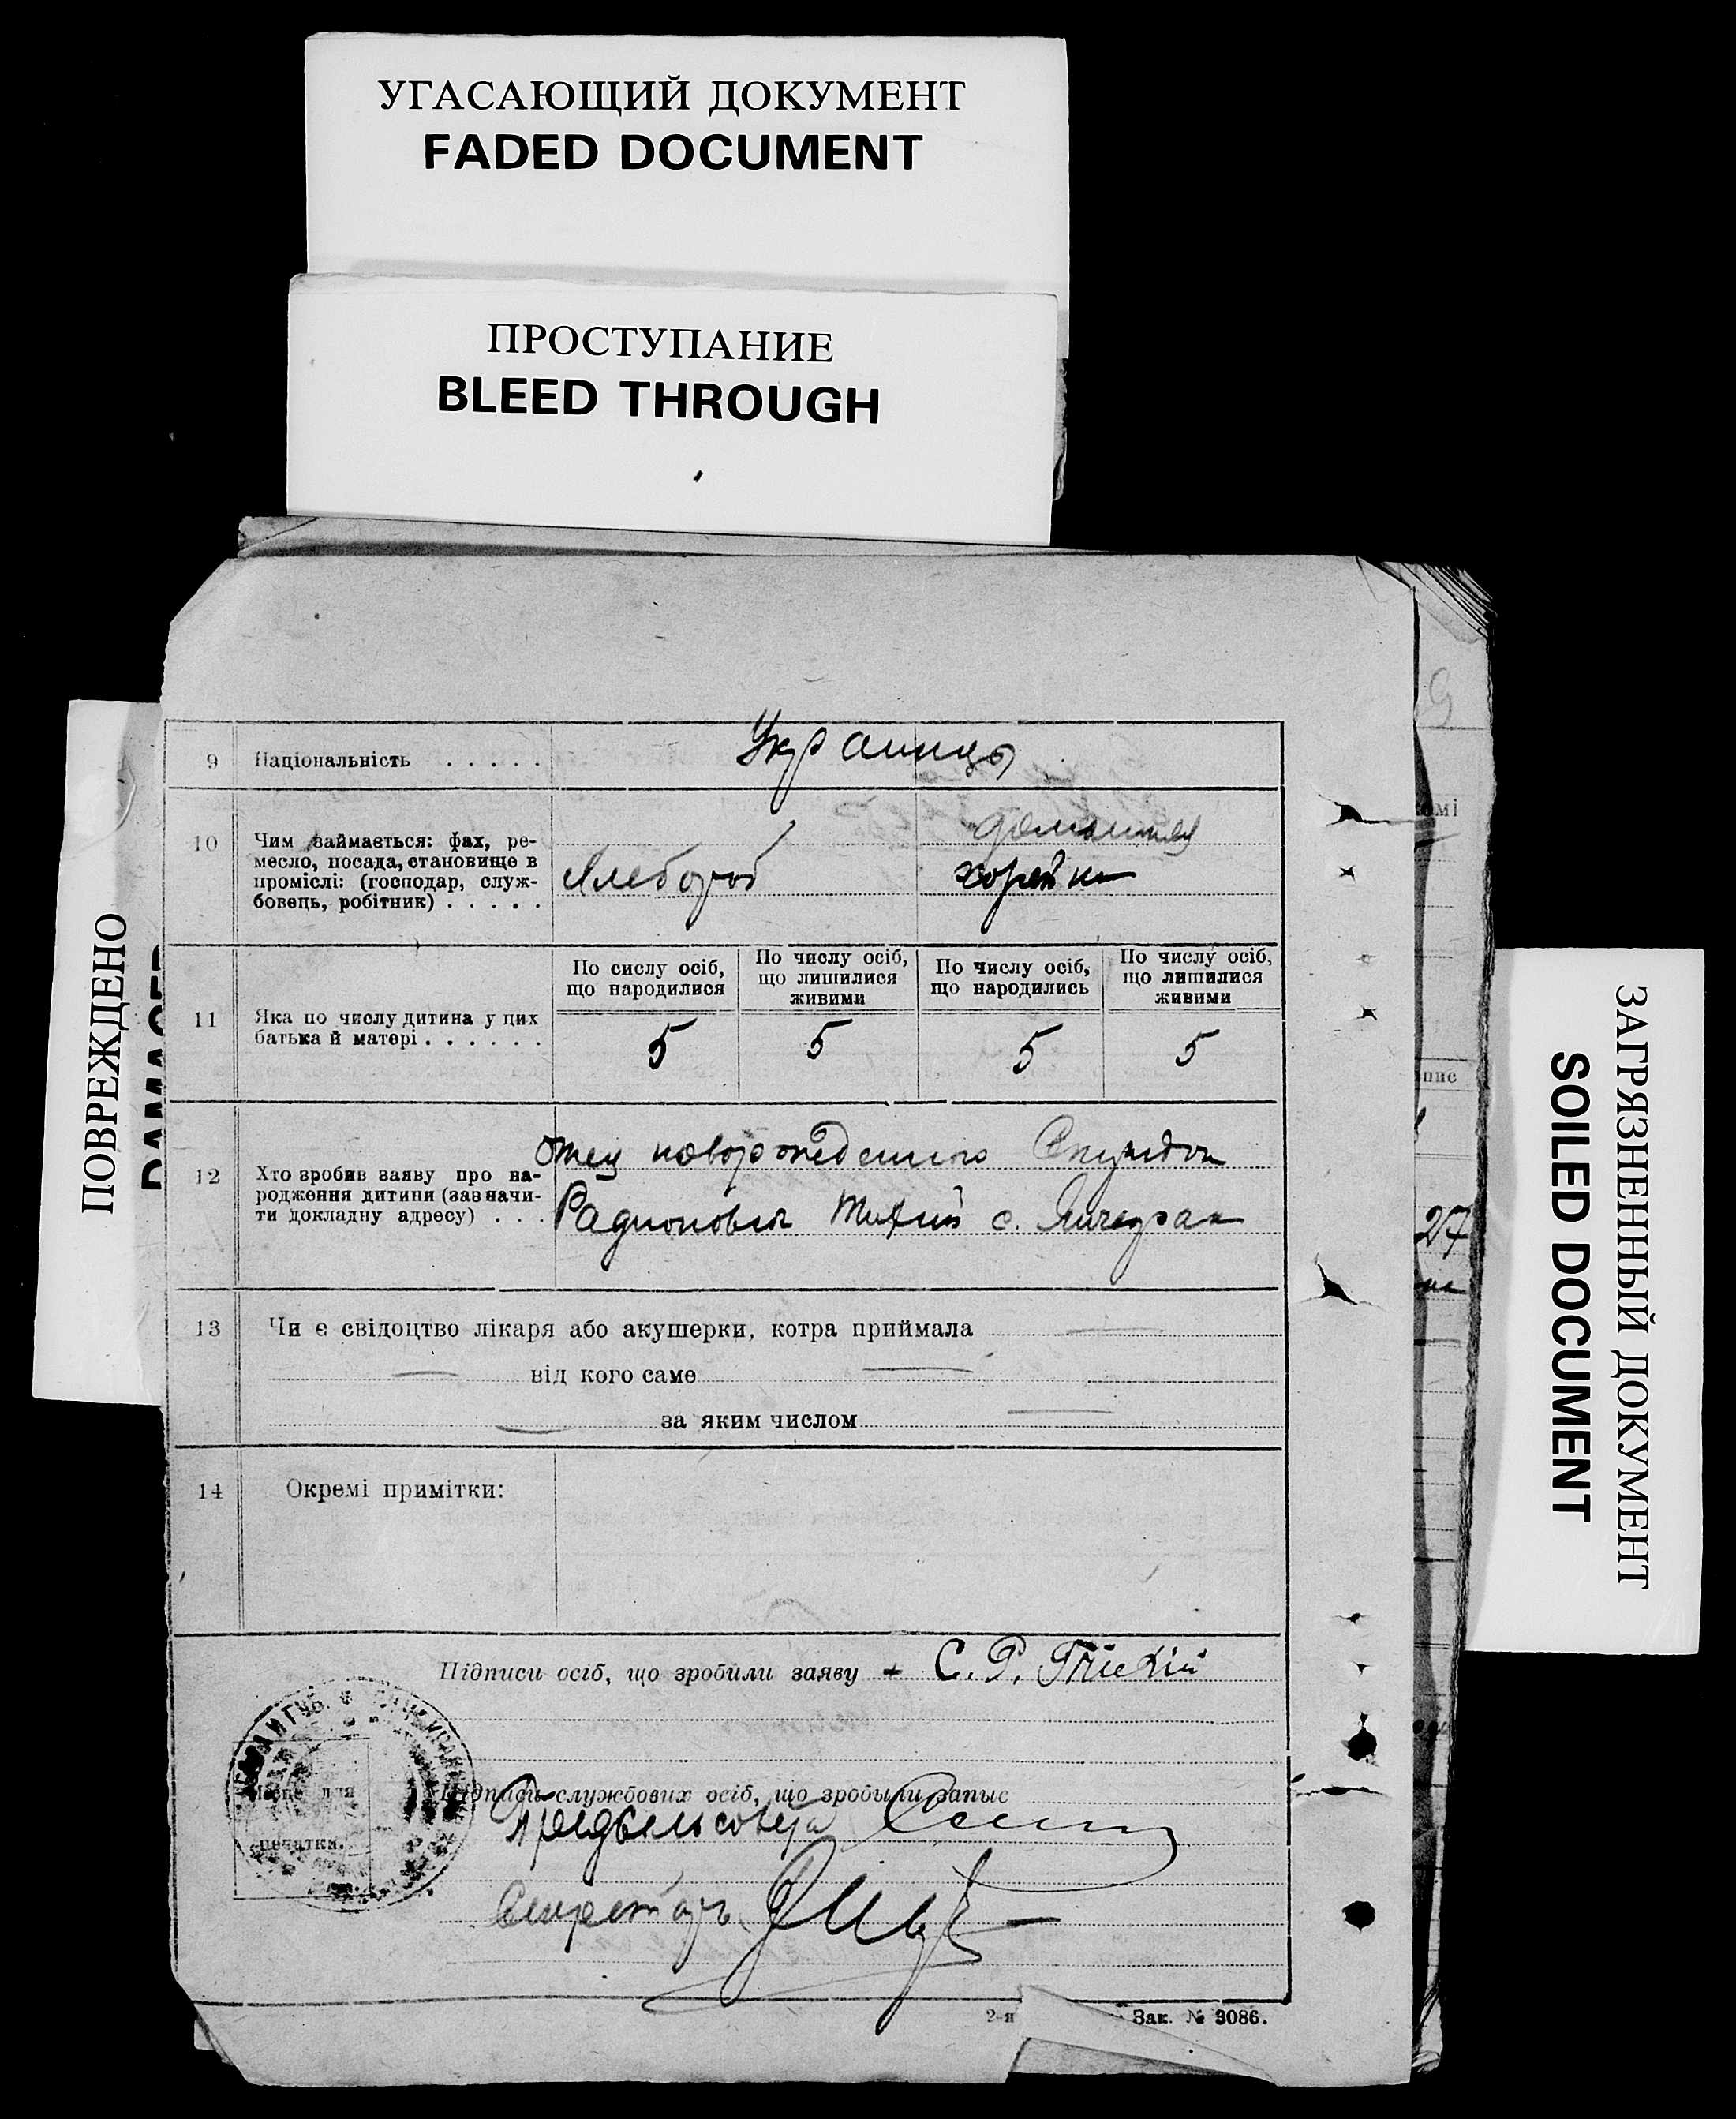 УГАСАЮЩИЙ ДОКУМЕНТ
FADED DOCUMENT
ПРОСТУПАНИЕ
BLEED THROUGH
ПОВРЕЖДЕНО
DAMAGED
ЗАГРЯЗНЕННЫЙ ДОКУМЕНТ
SOILED DOCUMENT
9 Національність . . . . .
Украинцы
10 Чим займається: фах, ре-
месло, посада, становище в
проміслі: (господар, служ-
бовець, робітник) . . . . .
Хлебороб
домашняя
хозяйка
11 Яка по числу дитина у цих
батька й матері . . . . . .
По сислу осіб,
що народилися
По числу осіб,
що лишилися
живими
По числу осіб,
що народились
По числу осіб,
що лишилися
живими
5 5 5 5
12 Хто зробив заяву про на-
родження дитини (зазначи-
ти докладну адресу) . . .
Отец новорожденного
Радионович с.
13 Чи є свідоцтво лікаря або акушерки, котра приймала
від кого саме
за яким числом
14 Окремі примітки:
Підписи осіб, що зробили заяву + С. Р.
Місце для
печатки.
Підписи службових осіб, що зробыли запыс
Предсельсовета
Секретарь
2-я
Зак. № 3086.
27